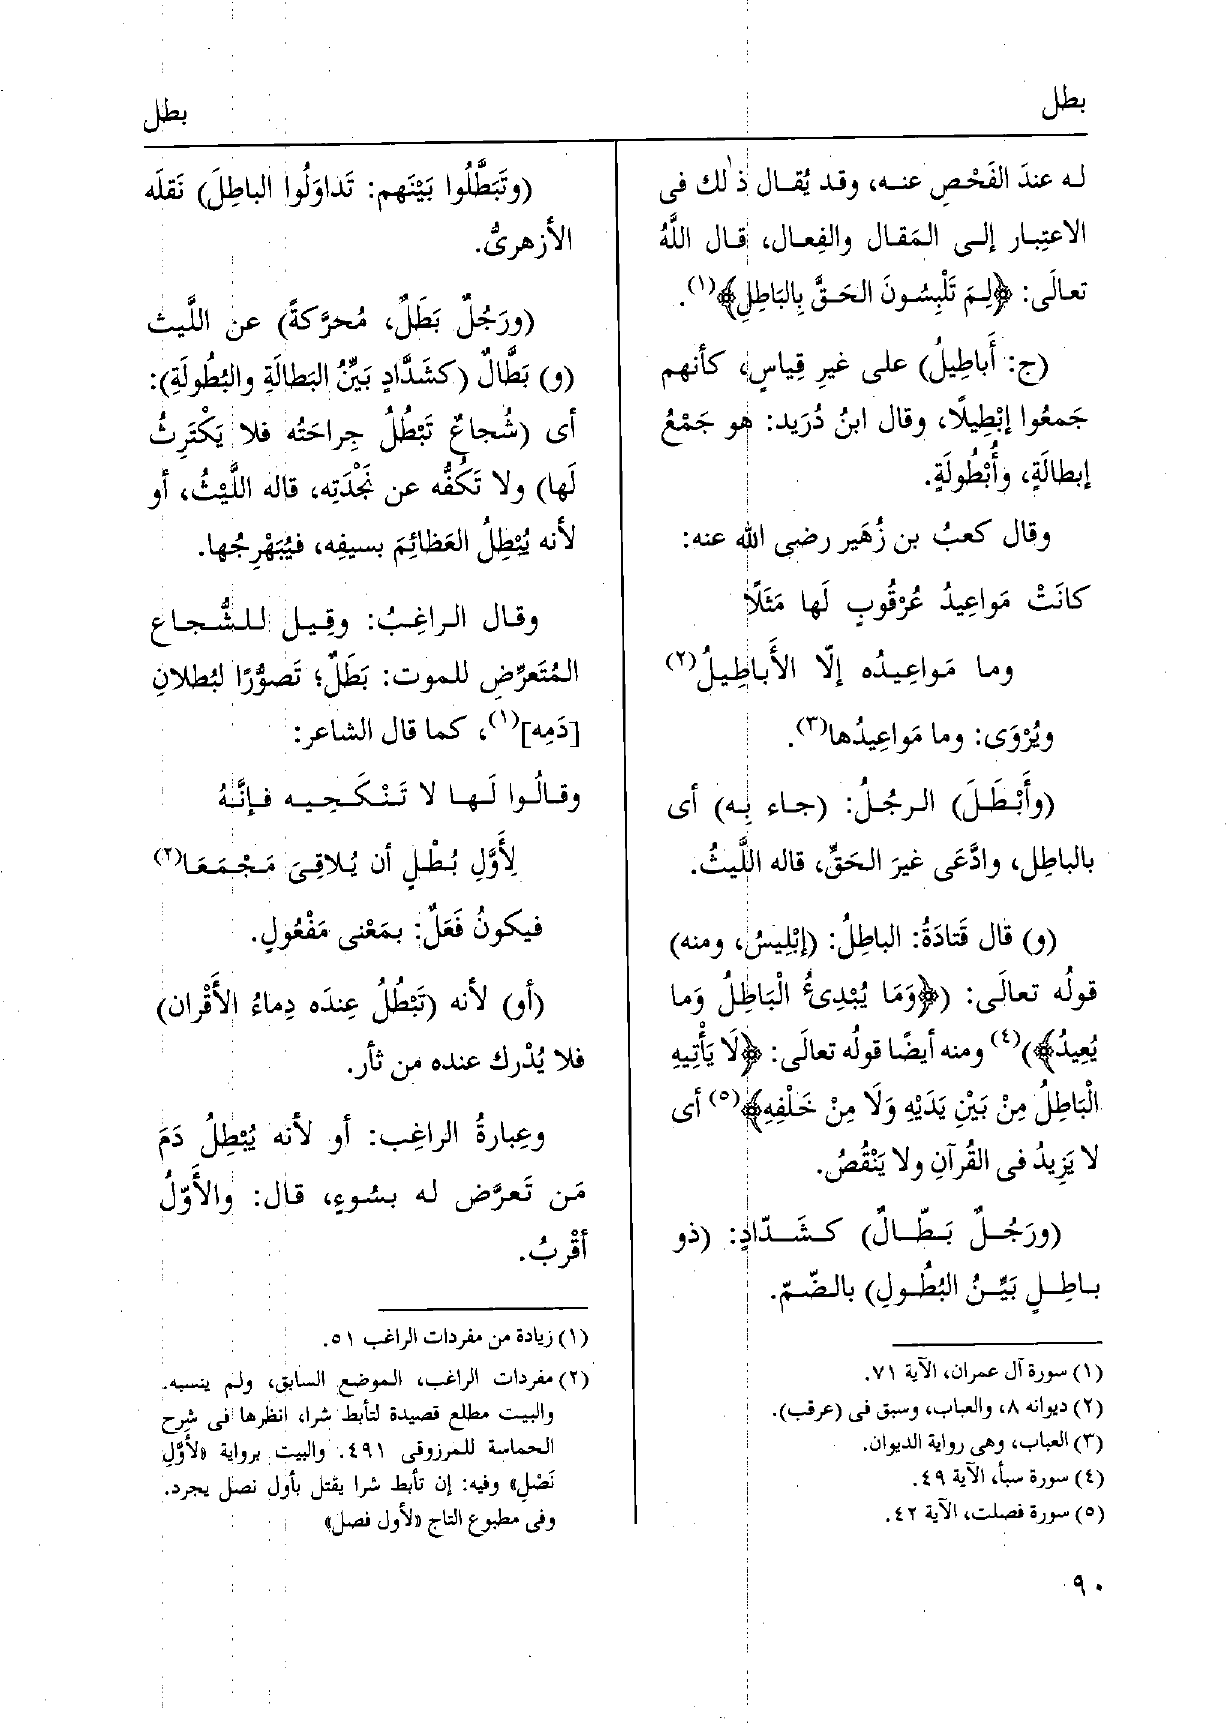 بطل
بطل
له عندَ الفَحْصِ عنه، وقد يُقال ذٰلك فى
الاعتِبار إلى المَقال والفِعال، قال اللَّهُ
تعالَى: ﴿لِمَ تَلْبِسُونَ الحَقَّ بِالبَاطِلِ﴾(١).
(ج: أَباطِيلُ) على غيرِ قِياسٍ، كأنهم
جَمعُوا إبْطِيلًا، وقال ابنُ دُرَيد: هو جَمْعُ
إبطالَةٍ، وأُبْطُولَةٍ.
وقال كعبُ بن زُهَير رضى الله عنه:
كانَتْ مَواعِيدُ عُرْقُوبٍ لَها مَثَلًا
وما مَواعِيدُه إلّا الأَباطِيلُ(٢)
ويُرْوَى: وما مَواعِيدُها(٣).
(وأَبْطَلَ) الرجُلُ: (جاء بِه) أى
بالباطِل، وادَّعَى غيرَ الحَقِّ، قاله اللَّيثُ.
(و) قال قَتادَةُ: الباطِلُ: (إبْلِيسُ، ومنه)
قولُه تعالَى: (﴿وَمَا يُبْدِئُ الْبَاطِلُ وَما
يُعِيدُ﴾)(٤) ومنه أيضًا قولُه تعالَى: ﴿لَا يَأْتِيهِ
الْبَاطِلُ مِنْ بَيْنِ يَدَيْهِ وَلَا مِنْ خَلْفِهِ﴾(٥) أى
لا يَزِيدُ فى القُرآنِ ولا يَنْقُصُ.
(ورَجُلٌ بَطّالٌ) كشَدّادٍ: (ذو
باطِلٍ بَيِّنُ البُطُولِ) بالضّمّ.
(١) سورة آل عمران، الآية ٧١.
(٢) ديوانه ٨، والعباب، وسبق فى (عرقب).
(٣) العباب، وهى رواية الديوان.
(٤) سورة سبأ، الآية ٤٩.
(٥) سورة فصلت، الآية ٤٢.
(وتَبَطَّلُوا بَيْنَهم: تَداوَلُوا الباطِلَ) نَقلَه
الأزهرىُّ.
(ورَجُلٌ بَطَلٌ، مُحرَّكةً) عن اللَّيث
(و) بَطَّالٌ (كشَدَّادٍ بَيِّنُ البَطالَةِ والبُطُولَةِ):
أى (شُجاعٌ تَبْطُلُ جِراحَتُه فلا يَكْتَرِثُ
لَها) ولا تَكُفُّه عن نَجْدَتِه، قاله اللَّيْثُ، أو
لأنه يُبْطِلُ العَظائِمَ بسيفِه، فيُبَهْرِجُها.
وقال الراغِبُ: وقِيل للشُّجاع
المُتَعرِّضِ للموت: بَطَلٌ؛ تَصوُّرًا لبُطلانِ
[دَمِه](١)، كما قال الشاعر:
وقالُوا لَها لا تَنْكَحِيه فإنَّهُ
لِأَوَّلِ بُطْلٍ أن يُلاقِىَ مَجْمَعَا(٢)
فيكونُ فَعَلٌ: بمَعْنى مَفْعُولٍ.
(أو) لأنه (تَبْطُلُ عِندَه دِماءُ الأَقْران)
فلا يُدْرك عنده من ثأر.
وعِبارةُ الراغِب: أو لأنه يُبْطِلُ دَمَ
مَن تَعرَّض له بسُوءٍ، قال: والأَوّلُ
أقْربُ.
(١) زيادة من مفردات الراغب ٥١.
(٢) مفردات الراغب، الموضع السابق، ولم ينسبه.
والبيت مطلع قصيدة لتأبط شرا، انظرها فى شرح
الحماسة للمرزوقى ٤٩١. والبيت برواية «لأوَّلِ
نَصْلٍ» وفيه: إن تأبط شرا يقتل بأول نصل يجرد.
وفى مطبوع التاج «لأول فصل»
٩٠